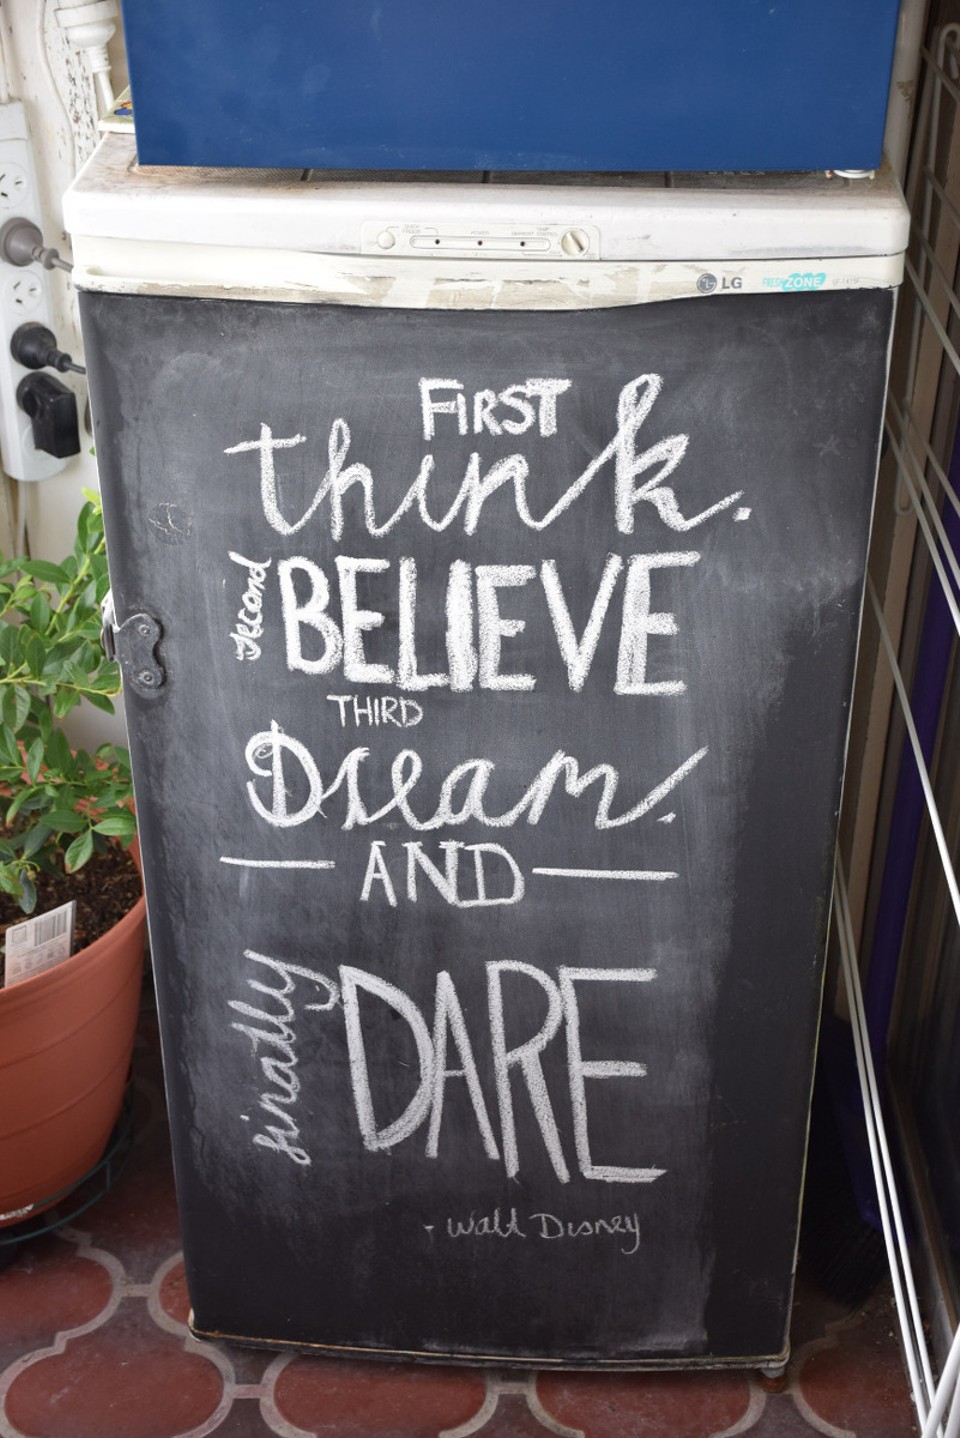 LG
FRESH ZONE
FIRST
think.
second BELIEVE
THIRD
Dream.
AND
finally DARE
- Walt Disney